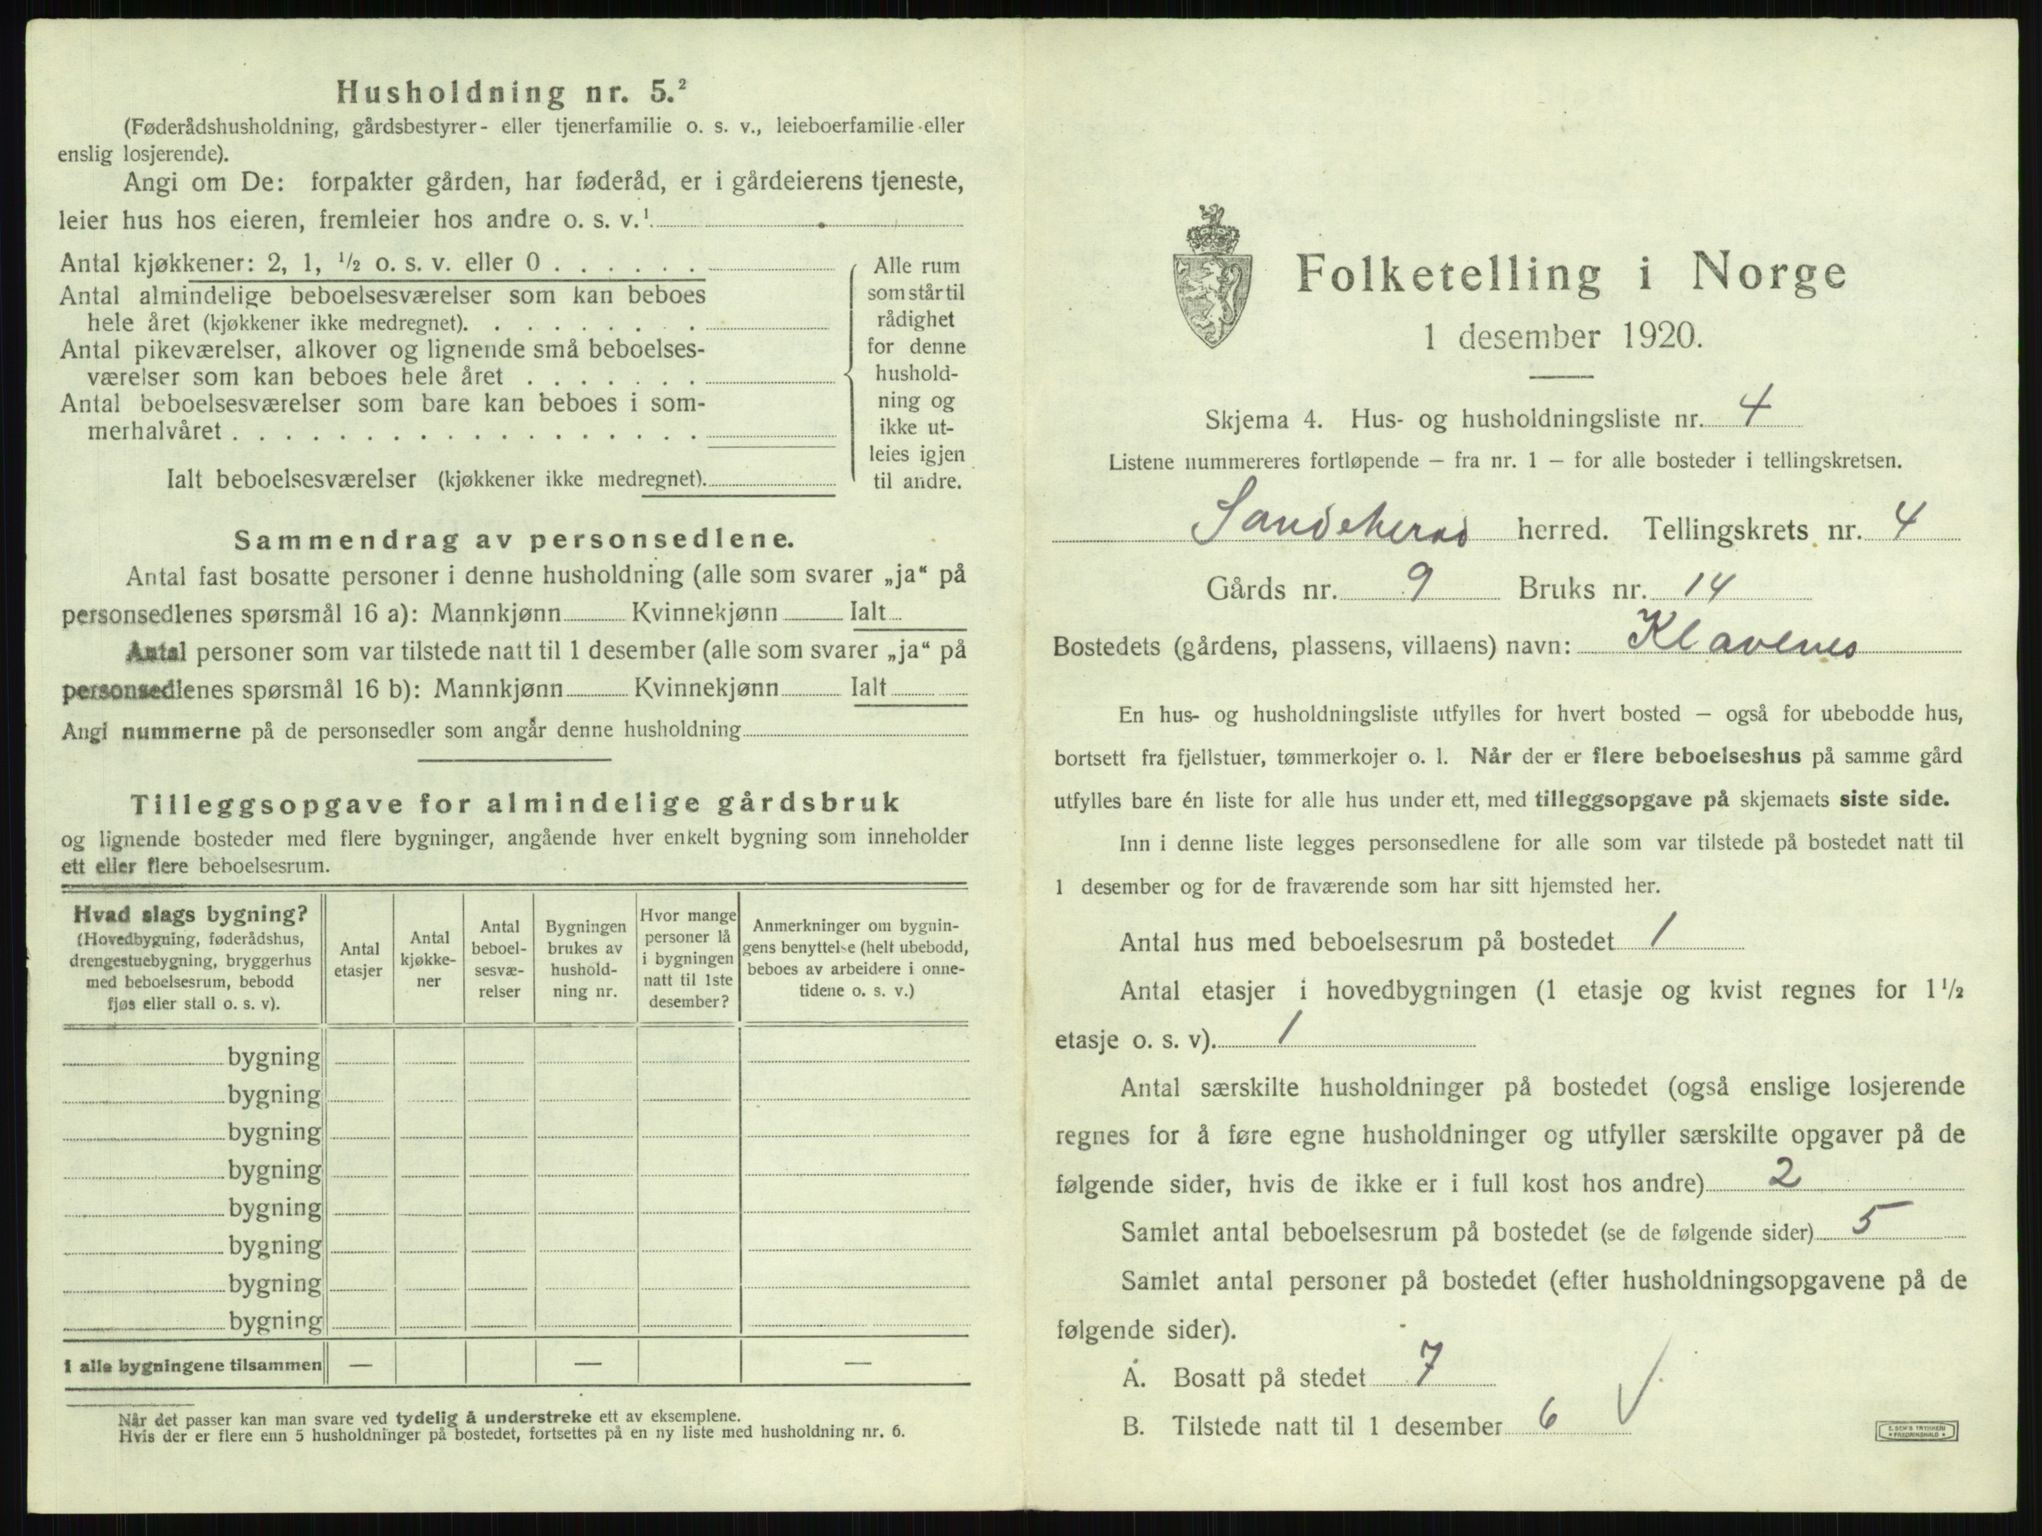 Husholdning nr. 5.²
(Føderådshusholdning, gårdsbestyrer- eller tjenerfamilie o. s. v., leieboerfamilie eller
enslig losjerende).
Angi om De: forpakter gården, har føderåd, er i gårdeierens tjeneste,
leier hus hos eieren, fremleier hos andre o. s. v.¹
Antal kjøkkener: 2, 1, ½ o. s. v. eller 0 . . . . . .
Antal almindelige beboelsesværelser som kan beboes
hele året (kjøkkener ikke medregnet). . . . . . . . .
Antal pikeværelser, alkover og lignende små beboelses-
værelser som kan beboes hele året . . . . . . .
Antal beboelsesværelser som bare kan beboes i som-
merhalvåret . . . . . . . . . . . . . . . . . .
Ialt beboelsesværelser (kjøkkener ikke medregnet).
Alle rum
som står til
rådighet
for denne
hushold-
ning og
ikke ut-
leies igjen
til andre.
Sammendrag av personsedlene.
Antal fast bosatte personer i denne husholdning (alle som svarer „ja“ på
personsedlenes spørsmål 16 a): Mannkjønn Kvinnekjønn Ialt
Antal personer som var tilstede natt til 1 desember (alle som svarer „ja“ på
personsedlenes spørsmål 16 b): Mannkjønn Kvinnekjønn Ialt
Angi nummerne på de personsedler som angår denne husholdning
Tilleggsopgave for almindelige gårdsbruk
og lignende bosteder med flere bygninger, angående hver enkelt bygning som inneholder
ett eller flere beboelsesrum.
Hvad slags bygning?
(Hovedbygning, føderådshus,
drengestuebygning, bryggerhus
med beboelsesrum, bebodd
fjøs eller stall o. s. v).
Antal
etasjer
Antal
kjøkke-
ner
Antal
beboel-
sesvæ-
relser
Bygningen
brukes av
hushold-
ning nr.
Hvor mange
personer lå
i bygningen
natt til 1ste
desember?
Anmerkninger om bygnin-
gens benyttelse (helt ubebodd,
beboes av arbeidere i onne-
tidene o. s. v.)
bygning
bygning
bygning
bygning
bygning
bygning
bygning
bygning
I alle bygningene tilsammen — — —
Når det passer kan man svare ved tydelig å understreke ett av eksemplene.
Hvis der er flere enn 5 husholdninger på bostedet, fortsettes på en ny liste med husholdning nr. 6.
Folketelling i Norge
1 desember 1920.
Skjema 4. Hus- og husholdningsliste nr. 4
Listene nummereres fortløpende – fra nr. 1 – for alle bosteder i tellingskretsen.
Sandeherad herred. Tellingskrets nr. 4
Gårds nr. 9 Bruks nr. 14
Bostedets (gårdens, plassens, villaens) navn: Klavenes
En hus- og husholdningsliste utfylles for hvert bosted – også for ubebodde hus,
bortsett fra fjellstuer, tømmerkojer o. l. Når der er flere beboelseshus på samme gård
utfylles bare én liste for alle hus under ett, med tilleggsopgave på skjemaets siste side.
Inn i denne liste legges personsedlene for alle som var tilstede på bostedet natt til
1 desember og for de fraværende som har sitt hjemsted her.
Antal hus med beboelsesrum på bostedet 1
Antal etasjer i hovedbygningen (1 etasje og kvist regnes for 1½
etasje o. s. v). 1
Antal særskilte husholdninger på bostedet (også enslige losjerende
regnes for å føre egne husholdninger og utfyller særskilte opgaver på de
følgende sider, hvis de ikke er i full kost hos andre) 2
Samlet antal beboelsesrum på bostedet (se de følgende sider) 5
Samlet antal personer på bostedet (efter husholdningsopgavene på de
følgende sider).
A. Bosatt på stedet 7
B. Tilstede natt til 1 desember 6